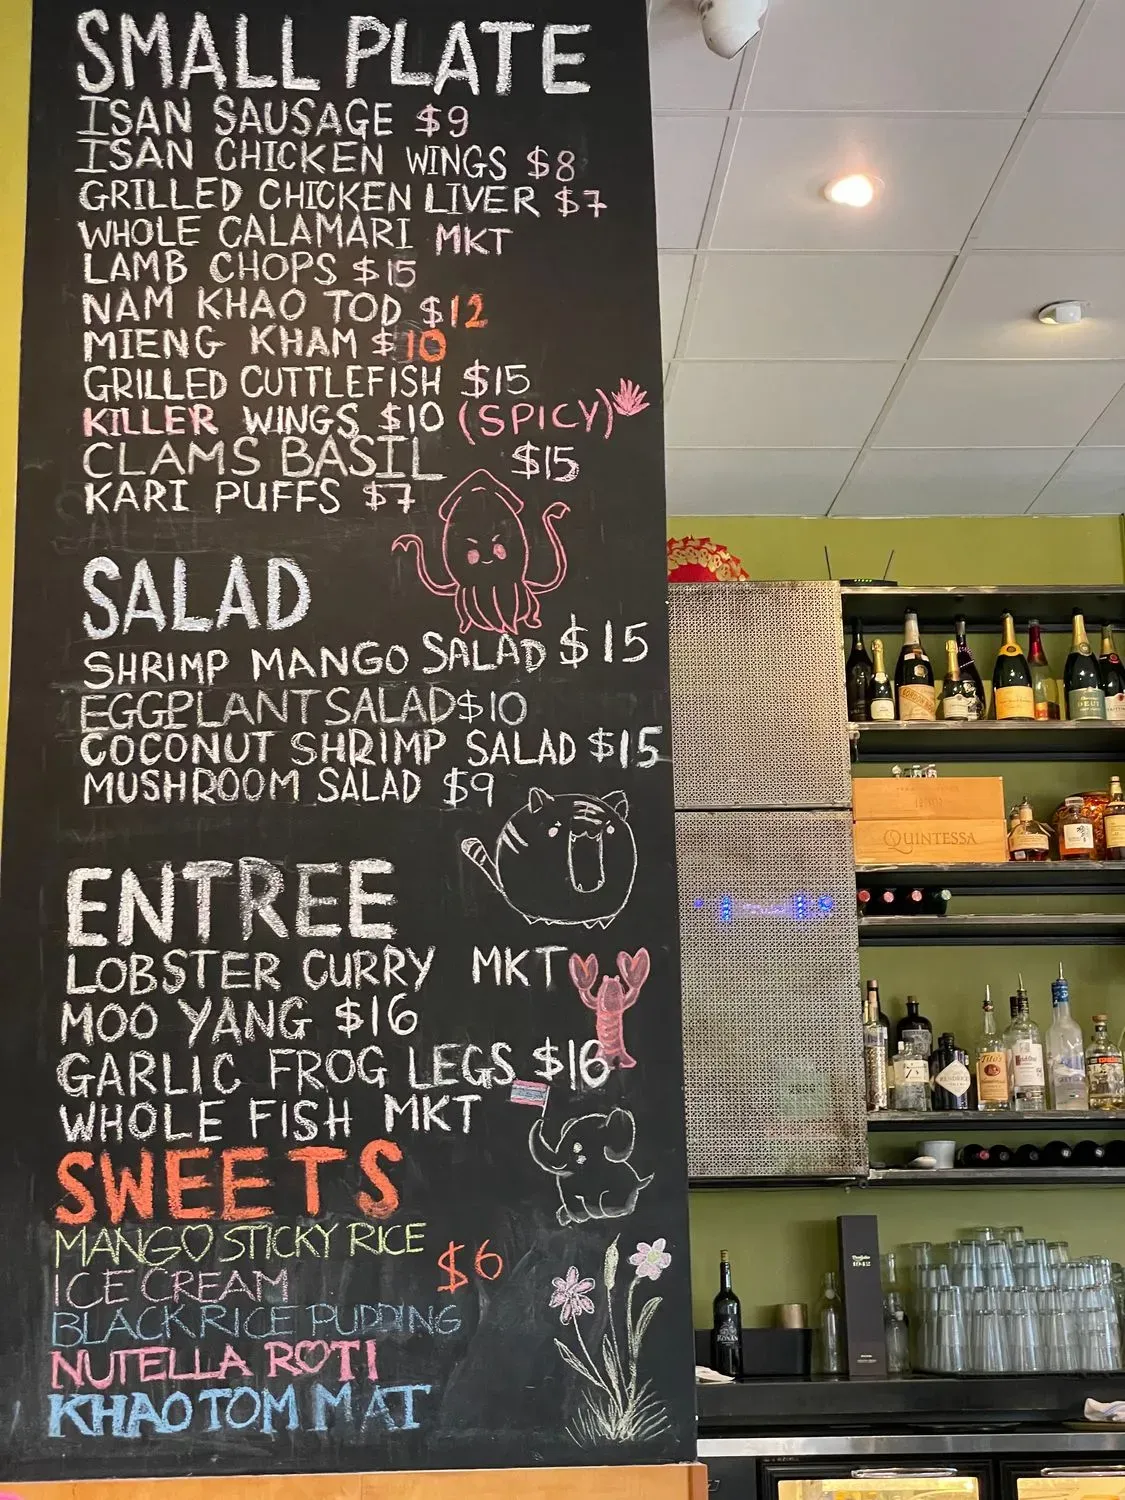 SMALL PLATE
ISAN SAUSAGE $9
ISAN CHICKEN WINGS $8
GRILLED CHICKEN LIVER $7
WHOLE CALAMARI MKT
LAMB CHOPS $15
NAM KHAO TOD $12
MIENG KHAM $10
GRILLED CUTTLEFISH $15
KILLER WINGS $10 (SPICY)
CLAMS BASIL $15
KARI PUFFS $7
SALAD
SHRIMP MANGO SALAD $15
EGGPLANT SALAD $10
COCONUT SHRIMP SALAD $15
MUSHROOM SALAD $9
ENTREE
LOBSTER CURRY MKT
MOO YANG $16
GARLIC FROG LEGS $16
WHOLE FISH MKT
SWEETS
MANGO STICKY RICE
ICE CREAM $6
BLACK RICE PUDDING
NUTELLA ROTI
KHAO TOM MAT
QUINTESSA
Tito's